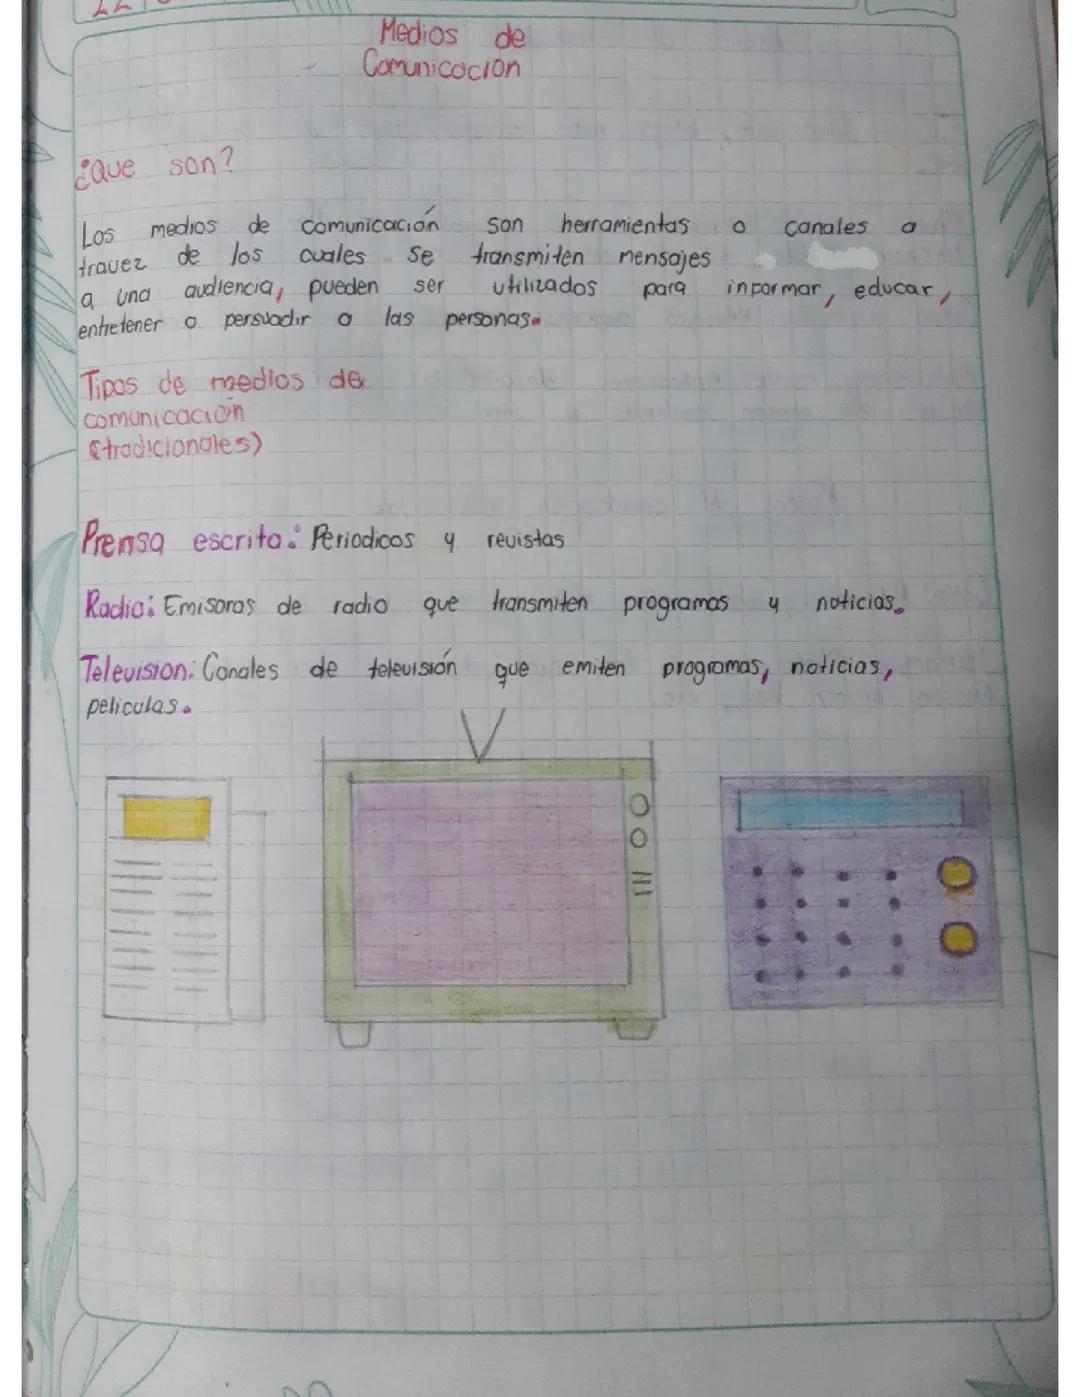 Medios de
Comunicación
¿Que son?
Los medios de comunicación son herramientas o canales a
travez de los cuales se transmiten mensajes
a una audiencia, pueden ser utilizados para informar, educar,
entretener o persuadir a las personas.
Tipos de medios de
comunicación
(tradicionales)
Prensa escrita: Periodicos y revistas
Radio: Emisoras de radio que transmiten programas y noticias.
Television: Canales de televisión que emiten programas, noticias,
peliculas.